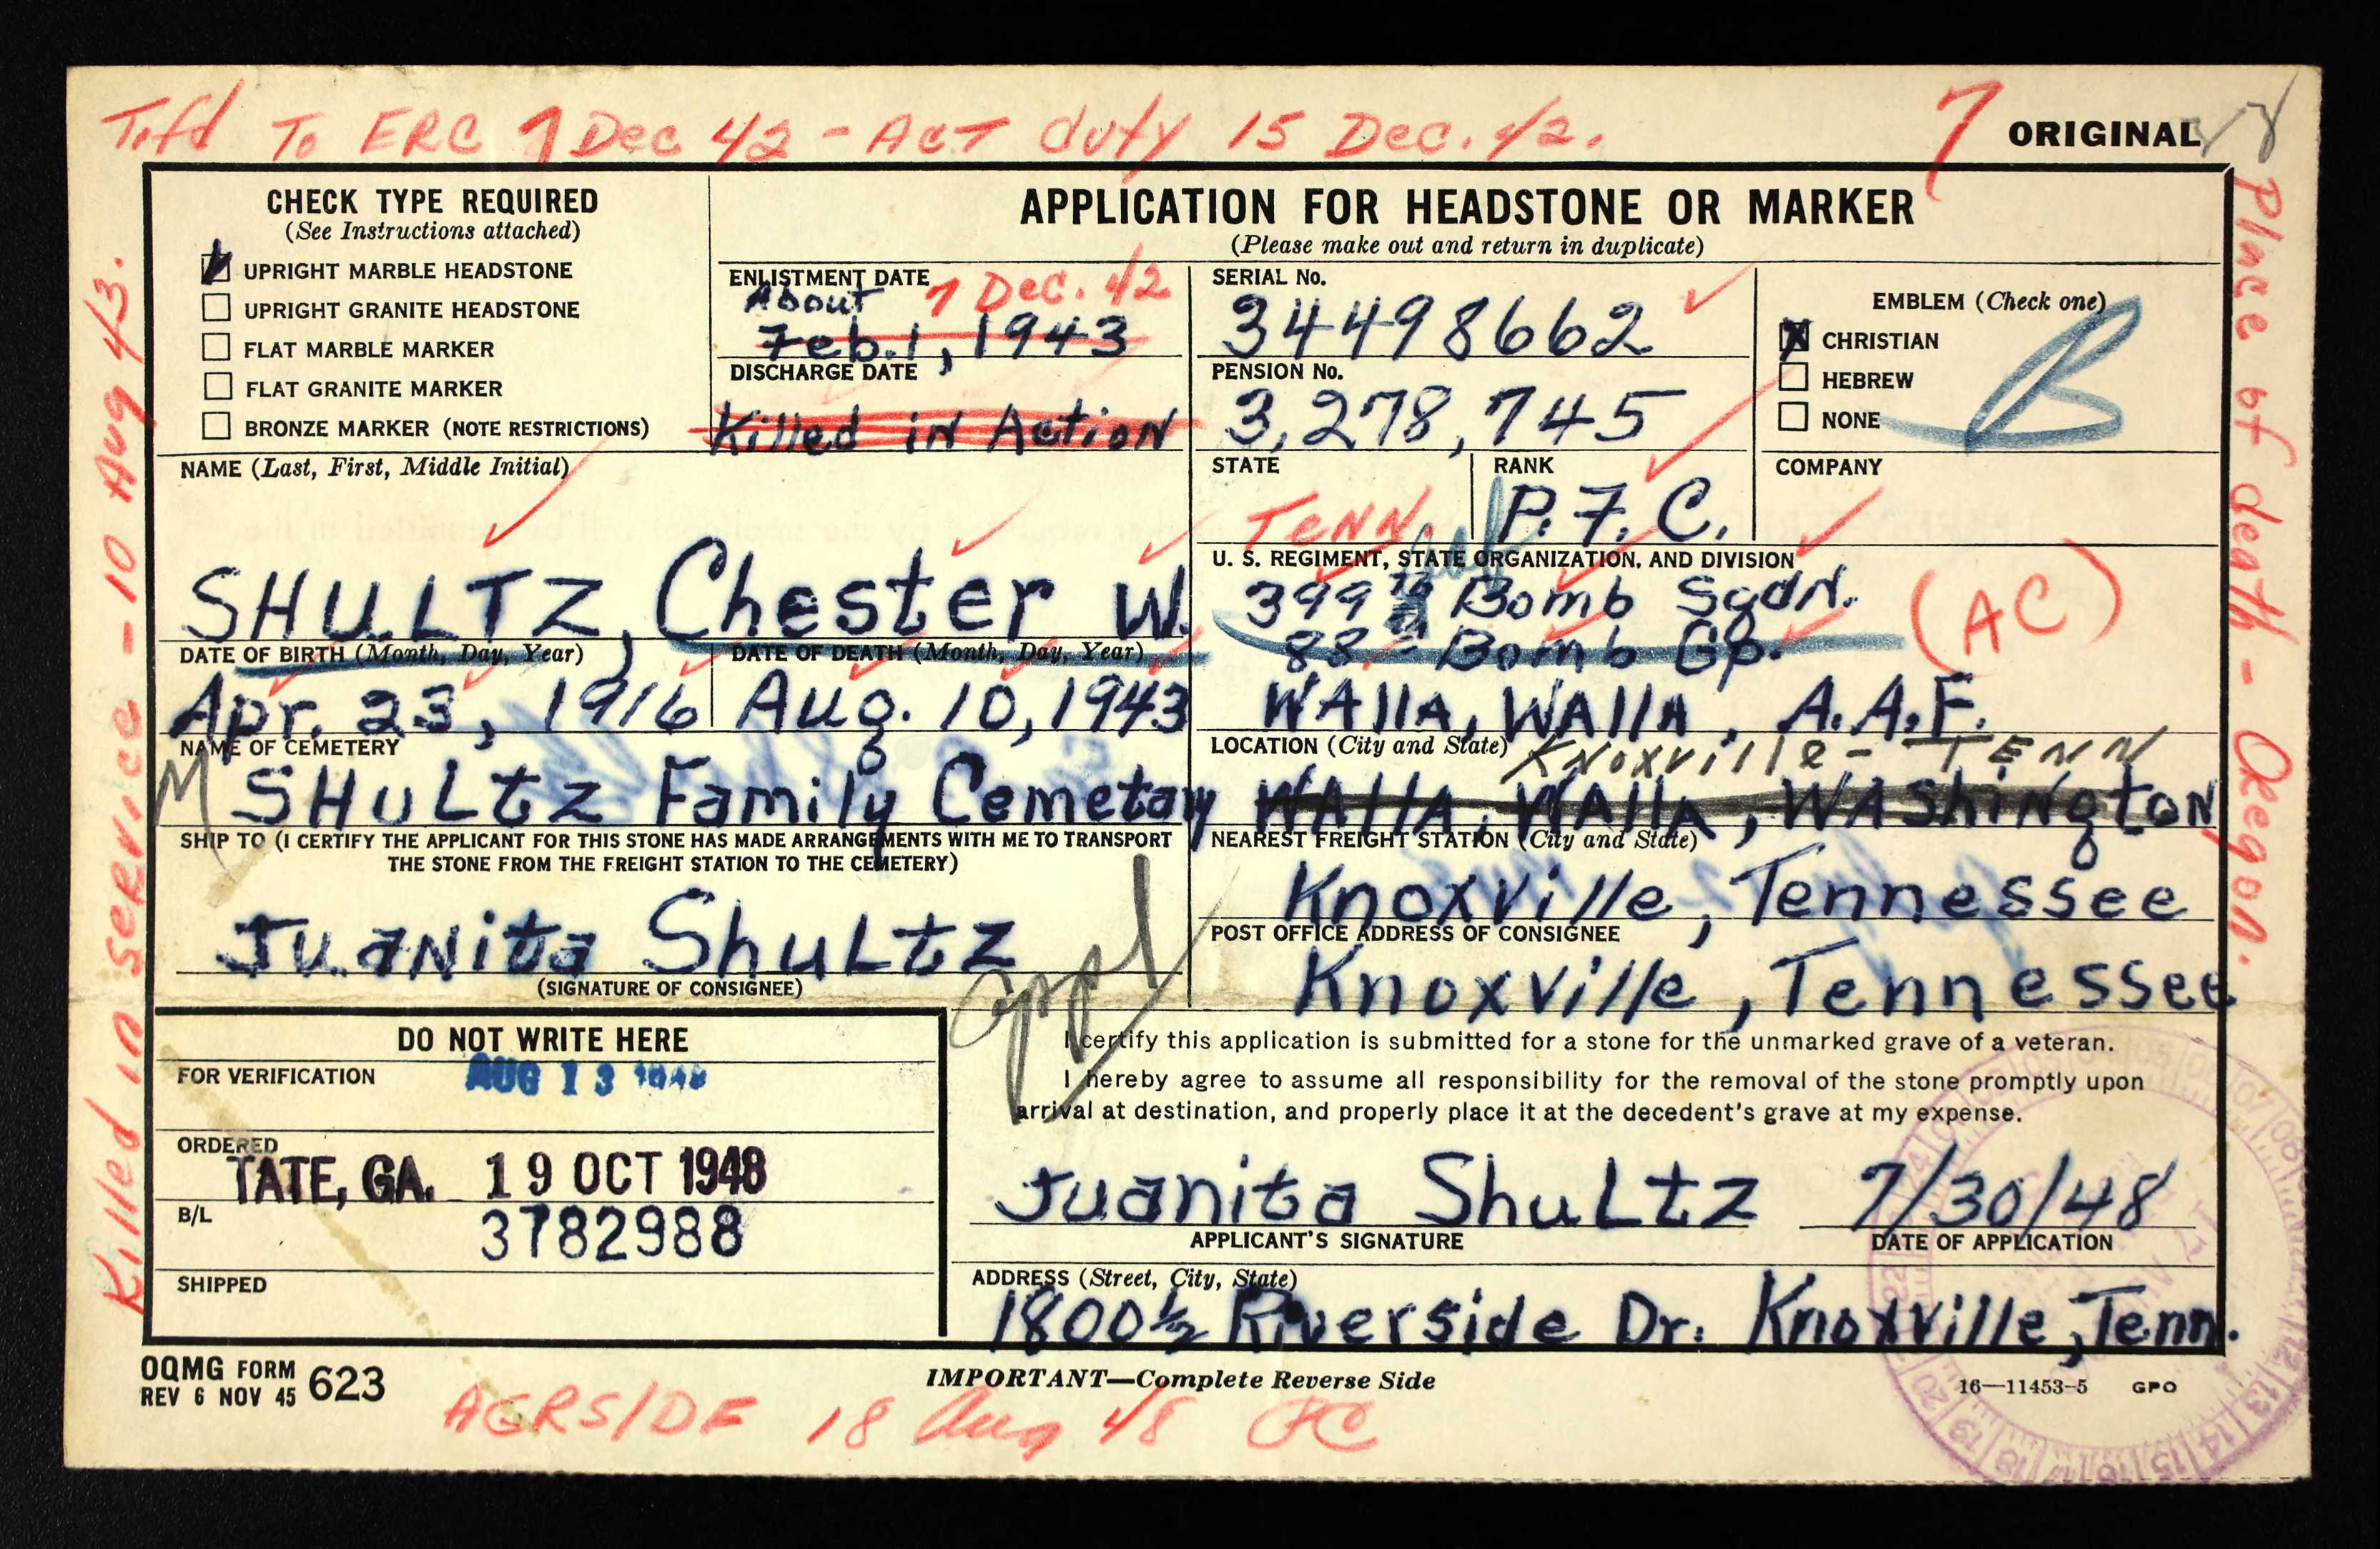 Tr.fd To ERC 7 Dec 42 - Act duty 15 Dec. 42.
7
ORIGINAL
CHECK TYPE REQUIRED
(See Instructions attached)
UPRIGHT MARBLE HEADSTONE
UPRIGHT GRANITE HEADSTONE
FLAT MARBLE MARKER
FLAT GRANITE MARKER
BRONZE MARKER (NOTE RESTRICTIONS)
APPLICATION FOR HEADSTONE OR MARKER
(Please make out and return in duplicate)
ENLISTMENT DATE
7 Dec. 42
About
Feb. 1, 1943
DISCHARGE DATE
Killed in Action
SERIAL No.
34498662
PENSION No.
3,278,745
EMBLEM (Check one)
CHRISTIAN
HEBREW
NONE
B
NAME (Last, First, Middle Initial)
SHULTZ, Chester W.
STATE
TENN.
RANK
P.F.C.
COMPANY
U. S. REGIMENT, STATE ORGANIZATION, AND DIVISION
399th Bomb Sqdn.
88th Bomb Gp.
(AC)
WAllA, WAllA, A.A.F.
DATE OF BIRTH (Month, Day, Year)
Apr. 23, 1916
DATE OF DEATH (Month, Day, Year)
Aug. 10, 1943
NAME OF CEMETERY
M SHuLtz Family Cemetary
LOCATION (City and State)
Knoxville - TENN
WAllA, WAllA, WAShiNgtoN
SHIP TO (I CERTIFY THE APPLICANT FOR THIS STONE HAS MADE ARRANGEMENTS WITH ME TO TRANSPORT
THE STONE FROM THE FREIGHT STATION TO THE CEMETERY)
Juanita Shultz
(SIGNATURE OF CONSIGNEE)
NEAREST FREIGHT STATION (City and State)
Knoxville, Tennessee
POST OFFICE ADDRESS OF CONSIGNEE
Knoxville, Tennessee
appl
DO NOT WRITE HERE
FOR VERIFICATION
AUG 13 1948
ORDERED
TATE, GA. 19 OCT 1948
B/L
3782988
SHIPPED
I certify this application is submitted for a stone for the unmarked grave of a veteran.
I hereby agree to assume all responsibility for the removal of the stone promptly upon
arrival at destination, and properly place it at the decedent's grave at my expense.
Juanita Shultz 7/30/48
APPLICANT'S SIGNATURE
DATE OF APPLICATION
ADDRESS (Street, City, State)
1800½ Riverside Dr. Knoxville, Tenn.
OQMG FORM 623
REV 6 NOV 45
IMPORTANT—Complete Reverse Side
16—11453-5 GPO
AGRS/DF 18 Aug 48
Killed in service - 10 Aug 43.
Place of death - Oregon.